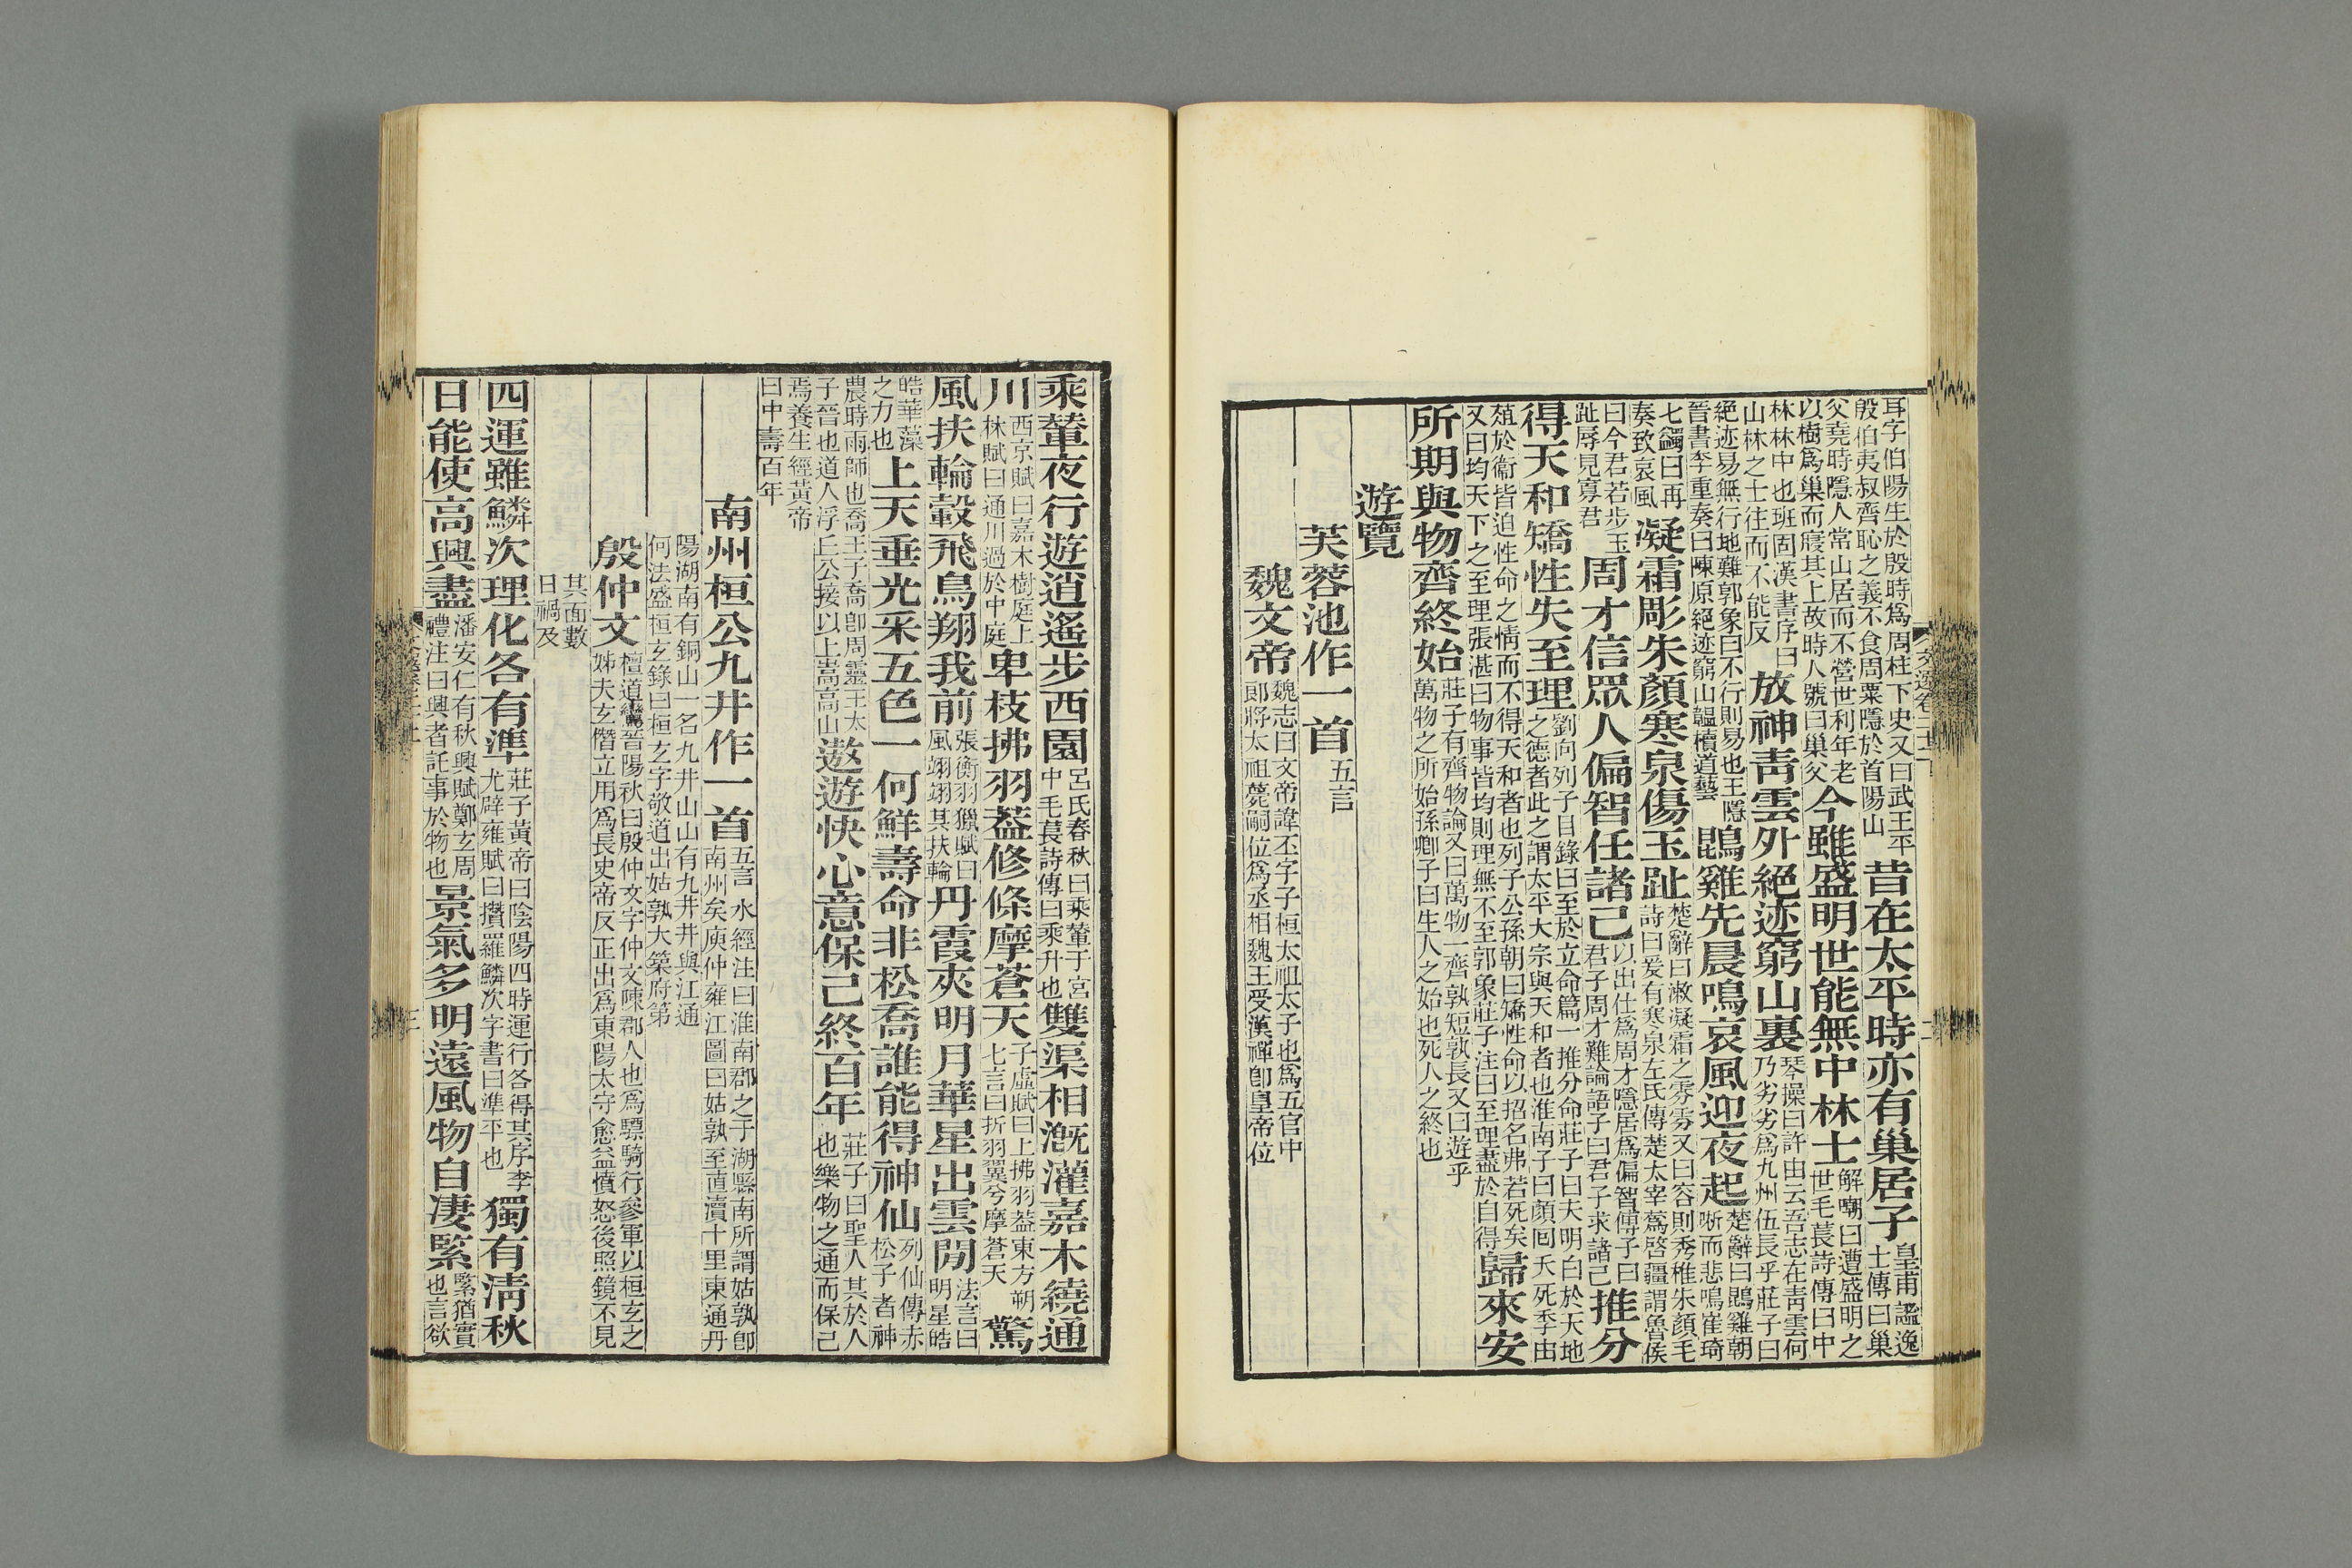 耳字伯陽生於殷時爲周柱下史又曰武王平殷伯夷叔齊恥之義不食周粟隱於首陽山昔在太平時亦有巢居子皇甫謐逸士傳曰巢
父堯時隱人常山居而不營世利年老以樹爲巢而寢其上故時人號曰巢父今雖盛明世能無中林士解嘲曰遭盛明之世毛萇詩傳曰中
林林中也班固漢書序曰山林之士往而不能反放神青雲外絕迹窮山裏琴操曰許由云吾志在青雲何乃劣劣爲九州伍長乎莊子曰
絕迹易無行地難郭象曰不行則易也王隱晉書李重奏曰陳原絕迹窮山韞櫝道藝鵾雞先晨鳴哀風迎夜起楚辭曰鵾雞朝晰而悲鳴崔琦
七蠲曰再奏致哀風凝霜彫朱顏寒泉傷玉趾楚辭曰漱凝霜之雰雰又曰容則秀稚朱顏毛詩曰爰有寒泉左氏傳楚太宰薳啓疆謂魯侯
曰今君若步玉趾辱見寡君周才信眾人偏智任諸己以出仕爲周才隱居爲偏智傅子曰君子周才難論語子曰君子求諸己推分
得天和矯性失至理劉向列子目錄曰至於立命篇一推分命莊子曰夫明白於天地之德者此之謂太平大宗與天和者也淮南子曰顏回夭死季由
葅於衞皆迫性命之情而不得天和者也列子公孫朝曰矯性命以招名弗若死矣又曰均天下之至理張湛曰物事皆均則理無不至郭象莊子注曰至理盡於自得歸來安
所期與物齊終始莊子有齊物論又曰萬物一齊孰短孰長又曰遊乎萬物之所始孫卿子曰生人之始也死人之終也
遊覽
芙蓉池作一首五言
魏文帝魏志曰文帝諱丕字子桓太祖太子也爲五官中郎將太祖薨嗣位爲丞相魏王受漢禪卽皇帝位
乘輦夜行遊逍遙步西園呂氏春秋曰乘輦于宮中毛萇詩傳曰乘升也雙渠相溉灌嘉木繞通
川西京賦曰嘉木樹庭上林賦曰通川過於中庭卑枝拂羽葢修條摩蒼天子虛賦曰上拂羽葢東方朔七言曰折羽翼兮摩蒼天驚
風扶輪轂飛鳥翔我前張衡羽獵賦曰風翊翊其扶輪丹霞夾明月華星出雲閒法言曰明星皓
皓華藻之力也上天垂光采五色一何鮮壽命非松喬誰能得神仙列仙傳赤松子者神
農時雨師也喬王子喬卽周靈王太子晉也道人浮丘公接以上嵩高山遨遊快心意保己終百年莊子曰聖人其於人也樂物之通而保己
焉養生經黃帝曰中壽百年
南州桓公九井作一首五言 水經注曰淮南郡之于湖縣南所謂姑孰卽南州矣庾仲雍江圖曰姑孰至直瀆十里東通丹
陽湖南有銅山一名九井山山有九井井與江通何法盛桓玄錄曰桓玄字敬道出姑孰大築府第
殷仲文檀道鸞晉陽秋曰殷仲文字仲文陳郡人也爲驃騎行參軍以桓玄之姊夫玄僭立用爲長史帝反正出爲東陽太守愈益憤怒後照鏡不見
其面數日禍及
四運雖鱗次理化各有準莊子黃帝曰陰陽四時運行各得其序李尤辟雍賦曰攢羅鱗次字書曰準平也獨有清秋
日能使高興盡潘安仁有秋興賦鄭玄周禮注曰興者託事於物也景氣多明遠風物自淒緊緊猶實也言欲